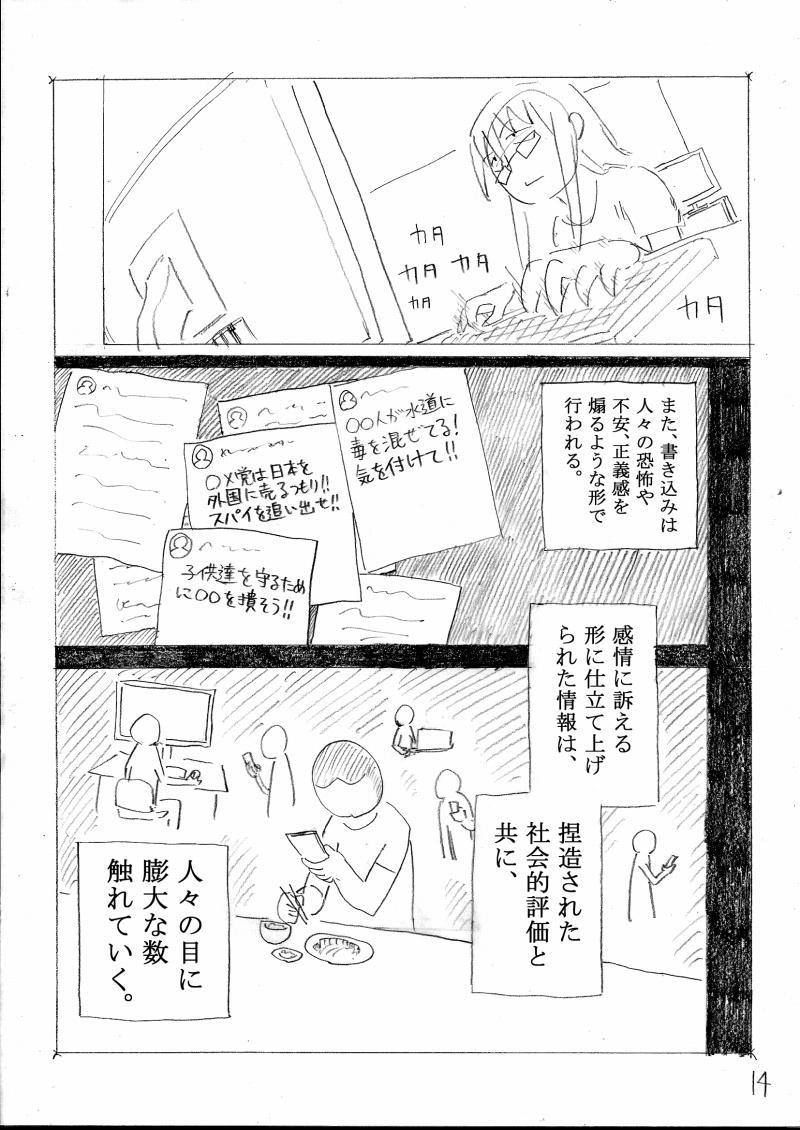 カタ
カタ
カタ
カタ
カタ
また、書き込みは
人々の恐怖や
不安、正義感を
煽るような形で
行われる。
〇〇人が水道に
毒を混ぜてる!
気を付けて!!
〇×党は日本を
外国に売るつもり!!
スパイを追い出せ!!
子供達を守るため
に〇〇を潰そう!!
感情に訴える
形に仕立て上げ
られた情報は、
捏造された
社会的評価と
共に、
人々の目に
膨大な数
触れていく。
14